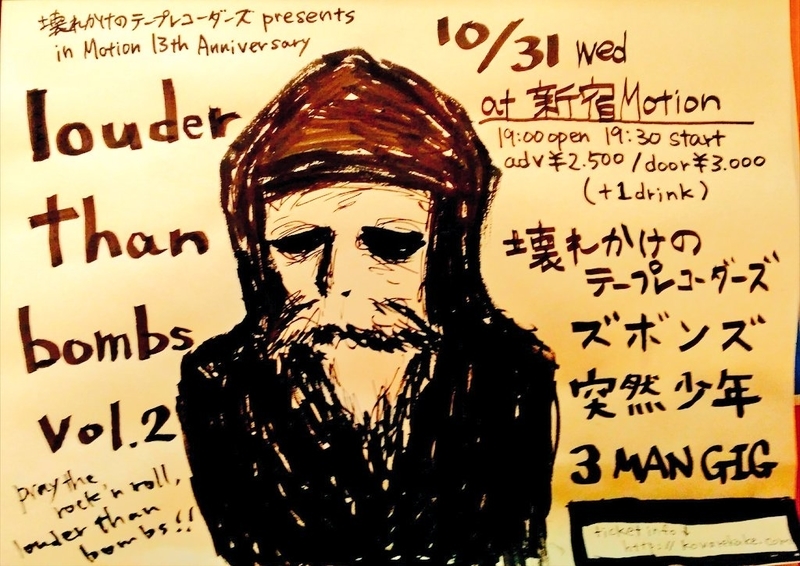 壊れかけのテープレコーダーズ presents
in Motion 13th Anniversary
louder
than
bombs
vol.2
play the
rock'n roll,
louder than
bombs!!
10/31 wed
at 新宿Motion
19:00open 19:30 start
adv¥2.500/door¥3.000
(+1drink)
壊れかけの
テープレコーダーズ
ズボンズ
突然少年
3 MAN GIG
ticket info↓